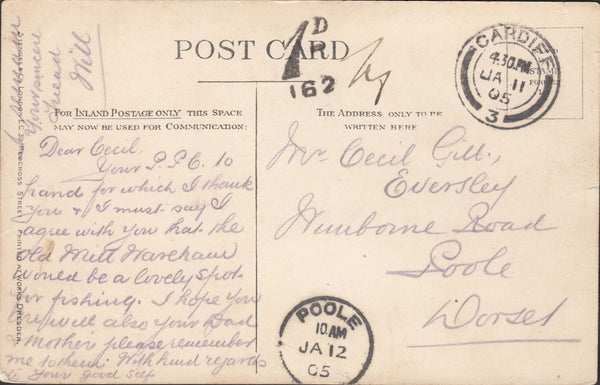 POST CARD
1D
162
CARDIFF
4.30PM
JA 11
05
3
FOR INLAND POSTAGE ONLY THIS SPACE
MAY NOW BE USED FOR COMMUNICATION:
THE ADDRESS ONLY TO BE
WRITTEN HERE
Dear Cecil.
Your P.P.C. to
hand for which I thank
you & I must say I
agree with you that the
Old Mill Wareham
would be a lovely spot
for fishing. I hope you
are well also your Dad
& Mother please remember
me to them. With kind regards
to Your Good Self
I remain
Your sincere
Friend
Will
Mr Cecil Gill,
Eversley
Wimborne Road
Poole
Dorset
POOLE
10AM
JA 12
05
STREET PRINTED WORKS DRESDEN.